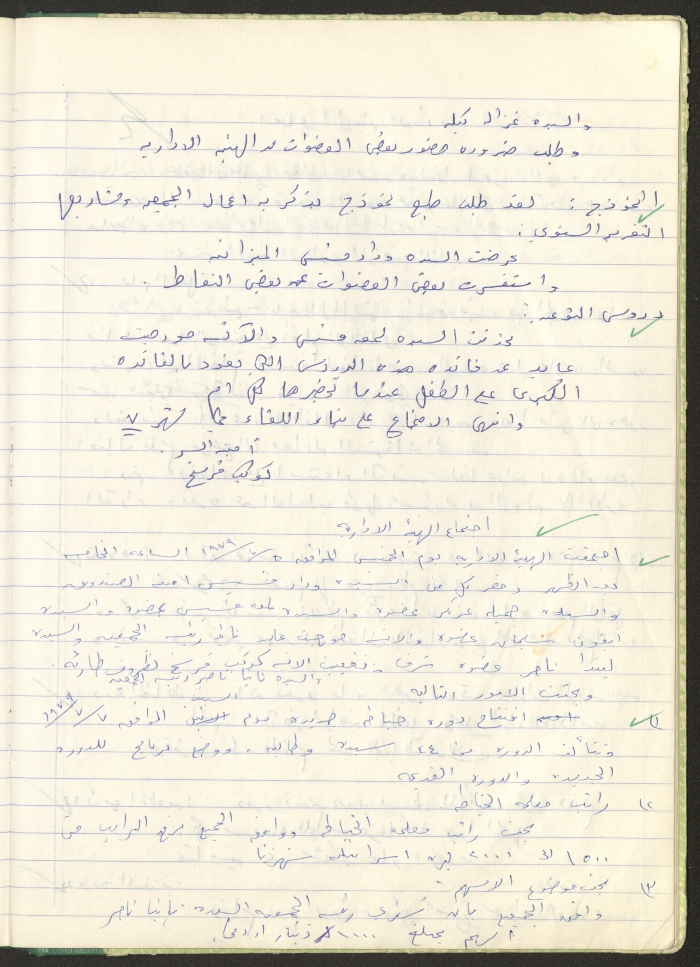 والسيده غزاله نبله
وطلب ضروره حضور بعض العضوات من الهيئه الاداريه
النموذج : لقد طلب طبع نموذج يذكر به اعمال الجمعيه ومشاريعها
التقرير السنوي :
عرضت السيده وداد قسيس الميزانيه
واستفسرت بعض العضوات عن بعض النقاط .
دروس التوعيه :
تحدثت السيده لمعه قسيس والآنسه جورجيت
عابد عن فائده هذه الدروس التي تعود بالفائده
الكبرى على الطفل عندما تحضرها كل ام
وانتهى الاجتماع على نيه اللقاء في شهر ٧
أمينه السر .
كوكب قرمش
اجتماع الهيئة الاداريه
اجتمعت الهيئة الاداريه يوم الخميس الموافق ٥/٧/١٩٧٩ الساعه الخامسه
بعد الظهر وحضر كل من السيدة وداد قسيس امينه الصندوق
والسيدة جميله عضوة والسيدة لمعه قسيس عضوة والسيدة
عضوة والانسه جورجيت عابد نائبة رئيسه الجمعيه والسيدة
ليندا ناصر عضوة شرف . تغيبت الانسه كوكب قرمش لظروف طارئه .
والسيده تانيا ناصر رئيسه الجمعيه
وبحثت الامور التاليه
١) افتتاح دورة خياطه جديده يوم السبت الموافق ٧/٧/١٩٧٩
وتتألف الدوره من ٤٤ سيدة وطالبه . ووضع برنامج للدورة
الجديده والدوره القديمه
٢) راتب معلمه الخياطه
بحث راتب معلمه الخياطه ووافق الجميع رفع الراتب من
١٥٠٠ الى ٢٠٠٠ ليره اسرائيليه شهريا
٣) بحث موضوع الاسهم .
وافق الجميع بان تشتري رئيسه الجمعيه السيده تانيا ناصر
اسهم بمبلغ ١٠٠٠ دينار اردني .